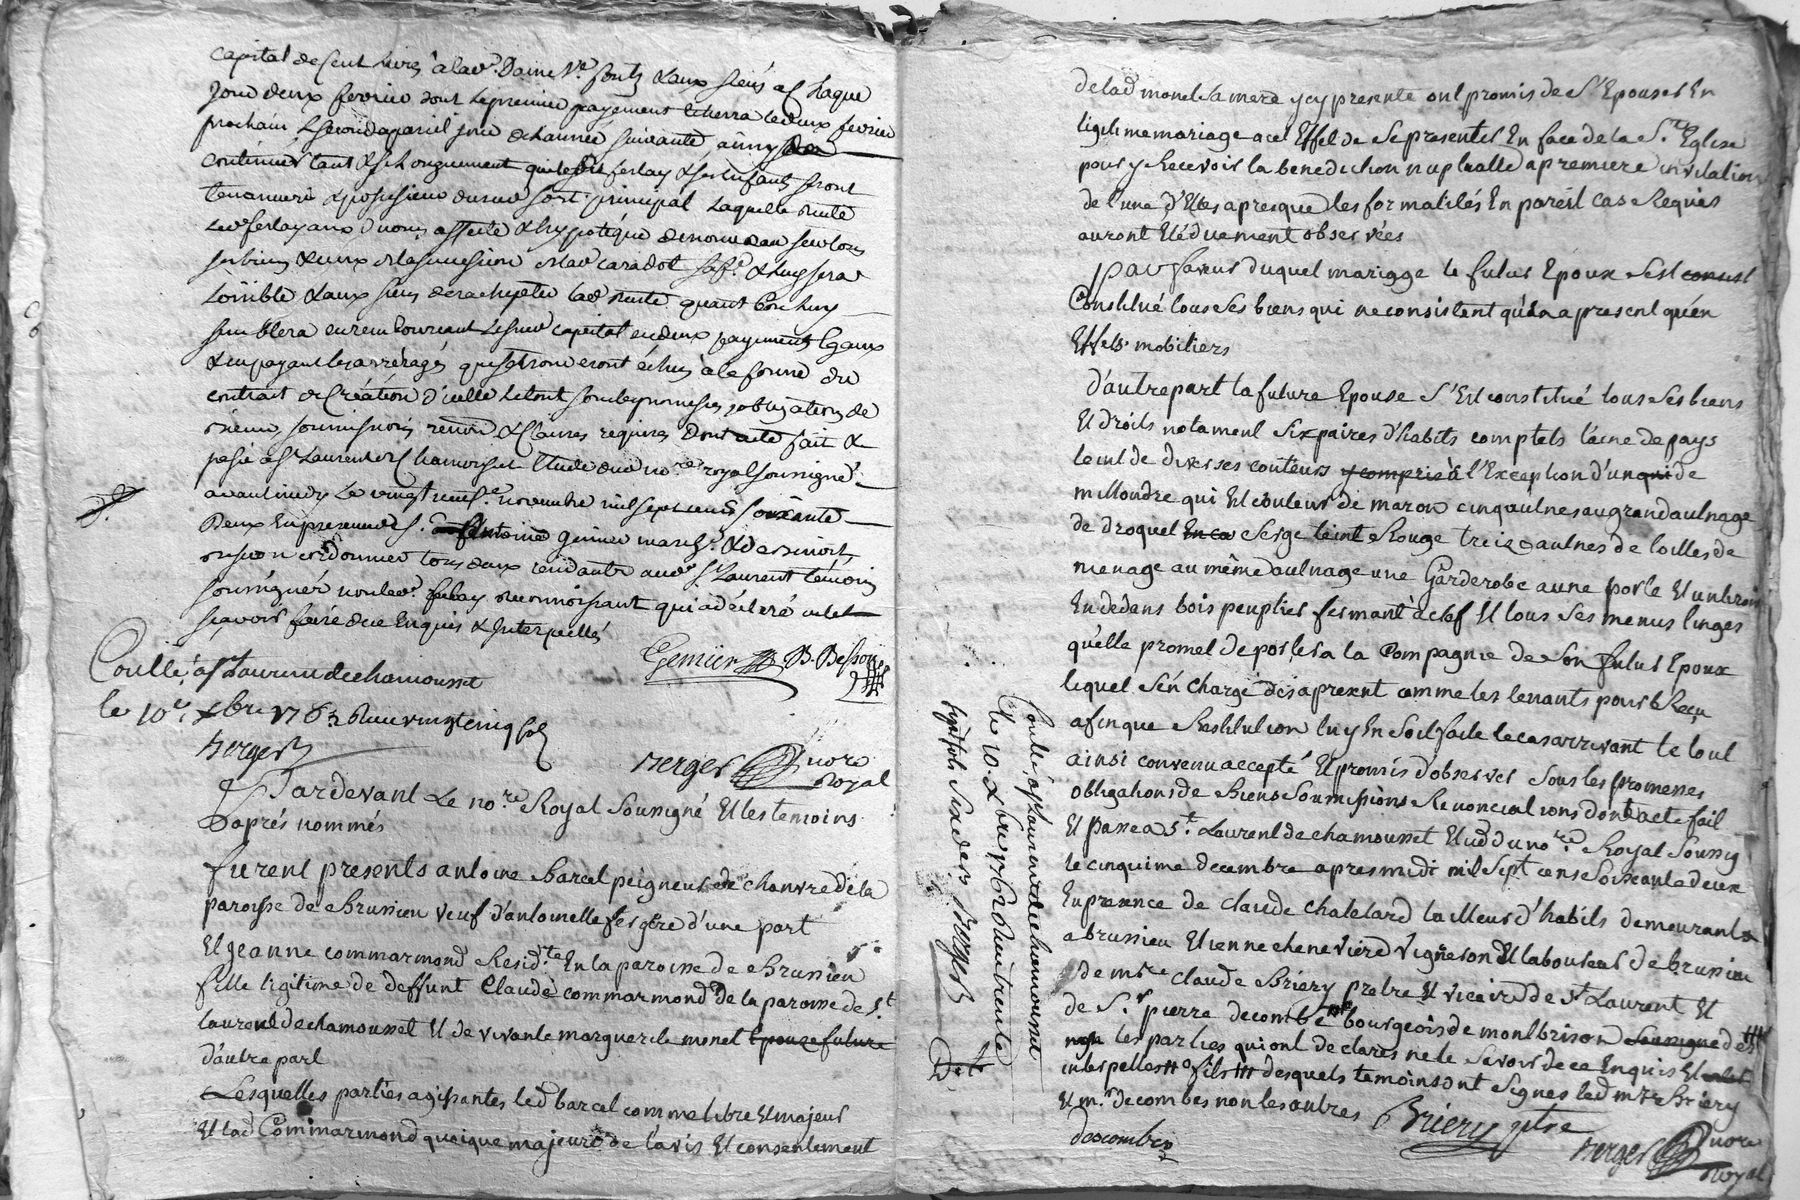 capital de Cent livres à lad. Dame Ve. & aux siens a Chaque
jour deux fevrier dont le premier payement echerra le deux fevrier
prochain le second a pareil jour de l'année suivante ainsy
continuer tant & si Longuement que led ferlay & ses Enfants seront
tenanciers & possesseurs dusud sort principal Laquelle rente
Led ferlay aux d noms affecté & hypotéqué de nouveau sur tous
ses biens & ceux de la succession de lad caradot sa fe. & luy sera
loisible & aux siens de rachepter lad rente quant bon luy
semblera en remboursant le sud capital en deux payements Egaux
& en payant les arrérages qui se trouveront échus à la forme du
contract de Création d'icelle Le tout sous les promesses, obligations de
biens, soumissions, renon & clauses requises Dont acte fait &
passé à St Laurent de Chamousset Etude dud no.re royal soussigné
avant midy Le vingt neuf.e novembre mil sept cents soixante
Deux En presence de S. Antoine Gemier march. & de Benoist
Besson cordonnier tous deux residants aud St Laurent témoins
soussignés non led. ferlay reconnoissant qui a déclaré ne le
sçavoir faire de ce Enquis & Interpellé
Gemier B. Besson
Contllé à St Laurent de chamousset
le 10e. xbre 1762 Reçu vingt cinq s
Berger
Berger nore
Royal
Pardevant Le no.re Royal Soussigné Et les temoins
D'aprés nommés
furent presents antoine Barcel peigneur de chanvre de la
paroisse de Brussieu veuf d'antoinette fergere d'une part
Et jeanne commarmond Resid.te En la paroisse de Brussieu
fille legitime de deffunt Claude commarmond de la paroisse de St.
laurent de chamousset Et de vivante marguerite monet Epouse future
d'autre part
Lesquelles parties agissantes led barcel comme libre Et majeur
Et lad Commarmond quoique majeure de l'avis Et consentement
de lad monet Sa mere y cy presente ont promis de S'Epouser En
legitime mariage a cet Effet de Se presenter En face de la S.te Eglise
pour y Recevoir la benediction nuptialle a premiere invitation
de l'une d'Elles apres que les formalités En pareil cas Requis
auront Eté duement observées
En faveur duquel mariage le futur Epoux S'est const
Constitué tous Ses biens qui ne consistent qu'a apresent qu'en
Effets mobiliers
D'autre part la future Epouse S'Est constitué tous Ses biens
Et droits notament Six paires d'habits complets laine de pays
teint de diverses couleurs y compris à l'Exception d'un qui de
millondre qui Et couleur de maron cinq aulnes au grand aulnage
de droguet En co Serge teint Rouge treize aulnes de toilles de
menage au même aulnage une Garderobe a une porte Et un tiroir
En dedans bois peuplier fermant à clef Et tous Ses menus linges
qu'elle promet de porter a la Compagnie de Son futur Epoux
lequel S'en charge dès apresent comme les tenants pour Reçu
afin que Restitution luy En Soit faite le cas arrivant le tout
ainsi convenu accepté Et promis d'observer Sous les promesses
obligations de Biens Soumissions Renonciations dont acte fait
Et passé a St. Laurent de chamousset Etud du no.re Royal Soussig
le cinquime decembre apres midi mil Sept cens Soixante deux
En presence de claude chatelard tailleur d'habits demeurant
a brussieu Etienne cheneviere Vigneron Et laboureur de brussieu
de m.re claude Briery pretre Et vicaire de St Laurent Et
de S.r pierre decombe bourgeois de montbrison Soussigné de
non les parties qui ont declarés ne le Savoir de ce Enquis Et
interpellés fils desquels temoins ont Signes led m.re Briery
Et m.r decombes non les autres
Briery ptre
descombes
Berger nore
Royal
Contllé à St Laurent de chamousset
le 10. xbre 1762 Reçu trente
Berger